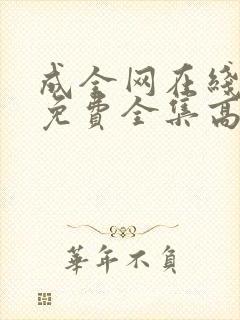 成全网在线
免费全集高
華年不負